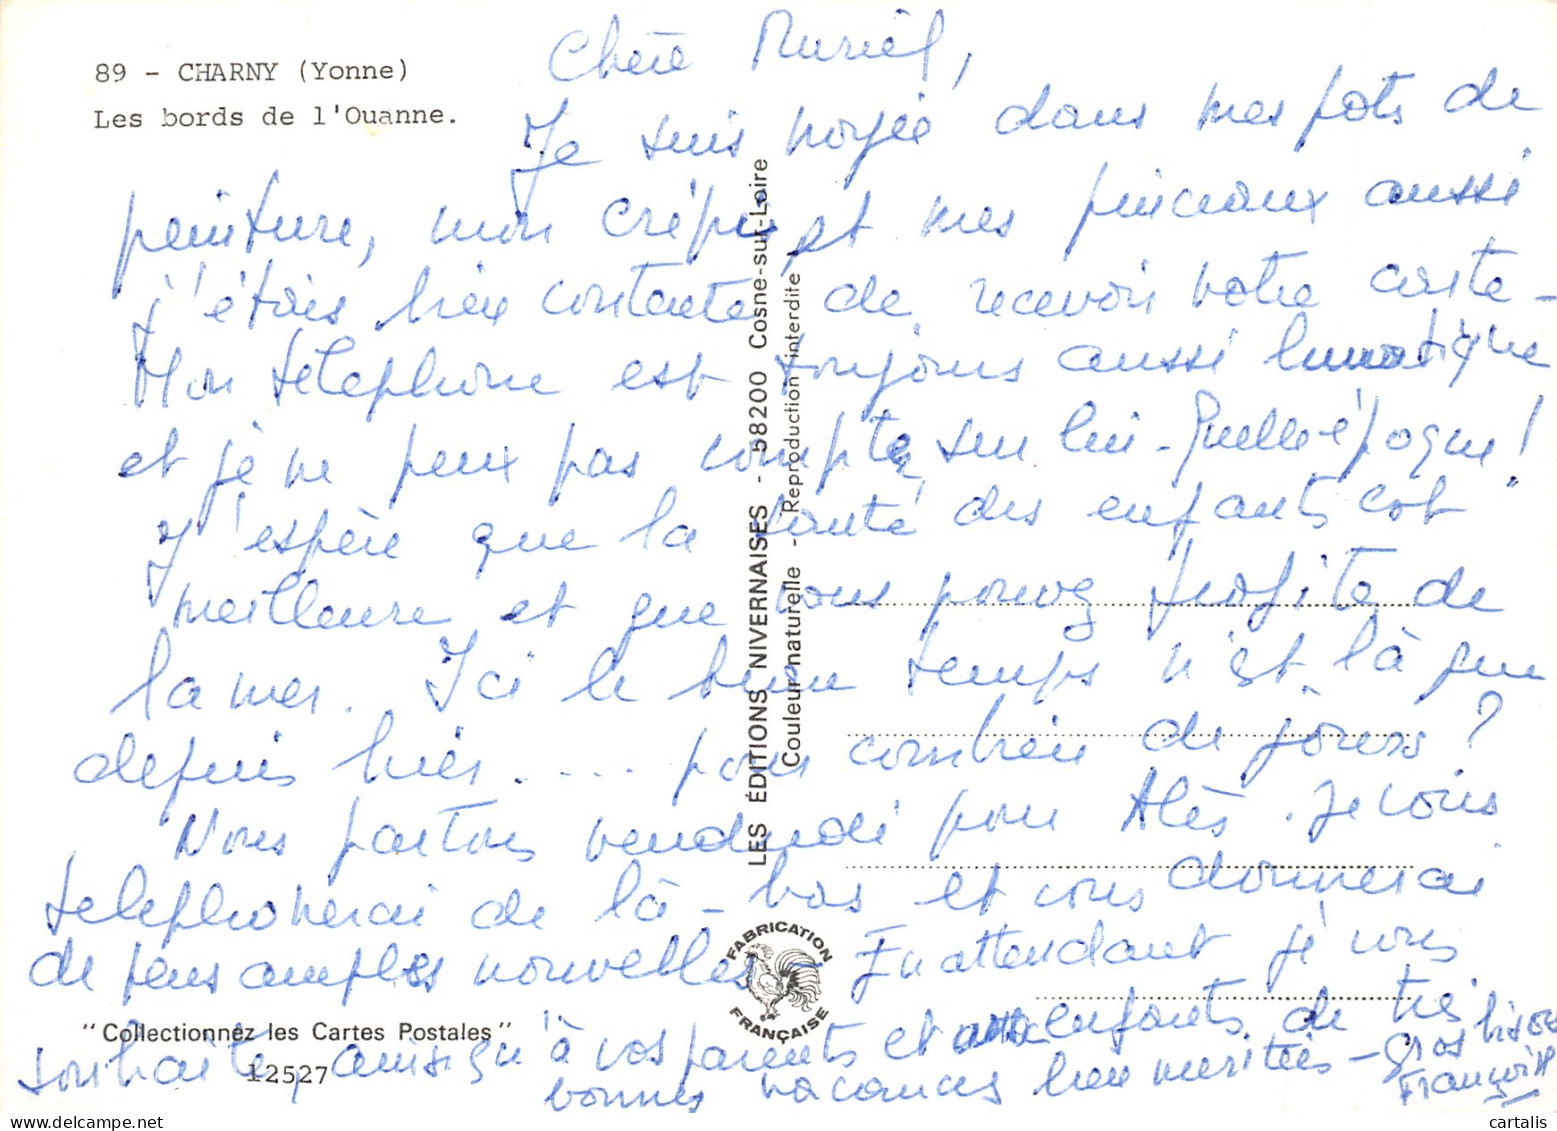 89 - CHARNY (Yonne)
Les bords de l'Ouanne.
Chère Muriel,
Je suis noyée dans mes pots de
peinture, mon crépis et mes pinceaux aussi
j'étais bien contente de recevoir votre carte -
Mon téléphone est toujours aussi lunatique
et je ne peux pas compter sur lui - Quelle époque !
J'espère que la santé des enfants est
meilleure et que vous pouvez profiter de
la mer. Ici le beau temps n'est là que
depuis hier .... pour combien de jours ?
Nous partons vendredi pour Alès. Je vous
telephonerai de là-bas et vous donnerai
de plus amples nouvelles - En attendant je vous
souhaite, ainsi qu'à vos parents et aux enfants de très
bonnes vacances bien meritées - Gros bisous
Françoise
LES ÉDITIONS NIVERNAISES - 58200 Cosne-sur-Loire
Couleur naturelle - Reproduction interdite
FABRICATION
FRANÇAISE
"Collectionnez les Cartes Postales"
12527
cartalis